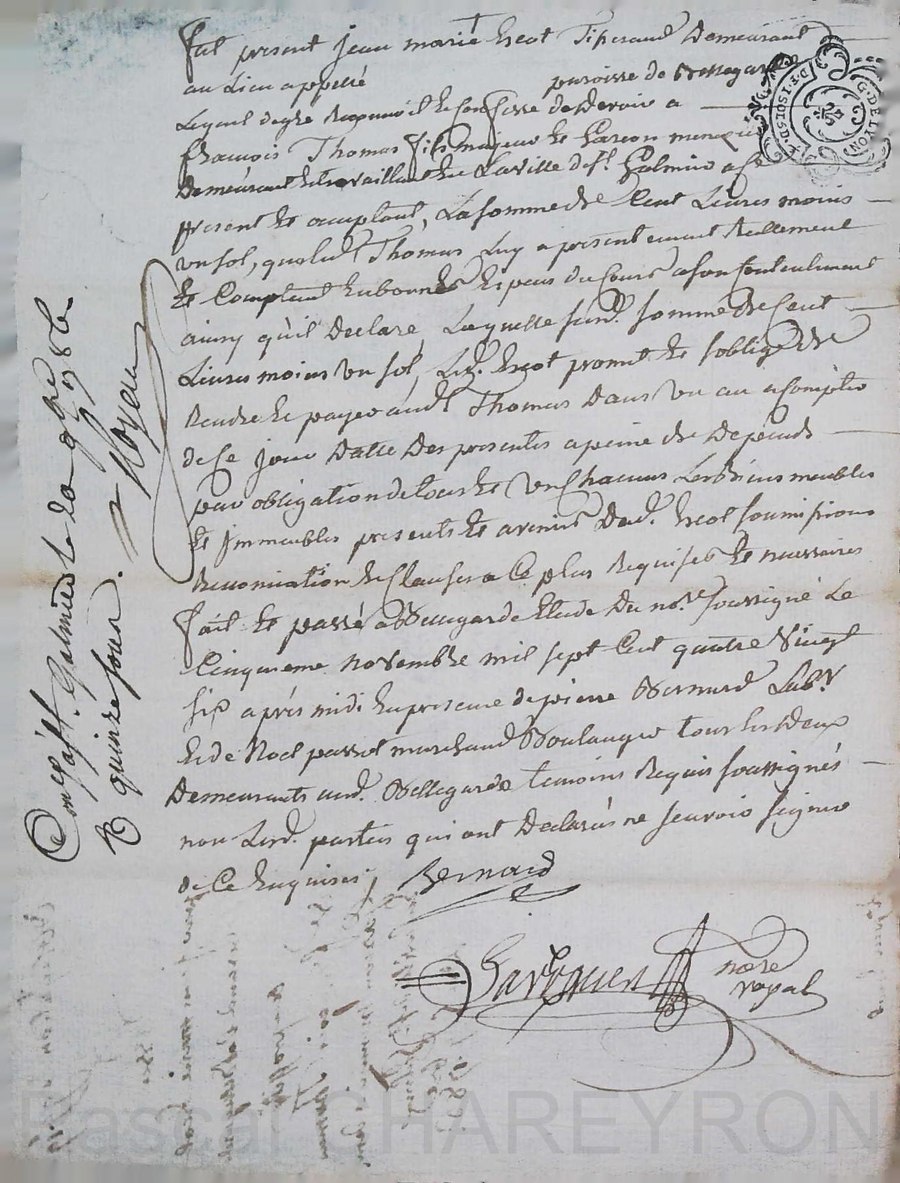 fut present jean marie hecot Tisserand Demeurant
au Lieu appellé paroisse de Bellegarde
Lequel de gré Reconnoit et Confesse de devoir a
francois Thomas fils majeur et Garcon
Demeurant et travaillant en La ville de St. Galmier a Ce
present et acceptant, La somme de Cent Livres moins
un sol, que led. Thomas Luy a presentement Reellement
et Comptant en bonnes Especes du Cours a son Contentement
ainsy qu'il Declare, Laquelle susd. somme de Cent
Livres moins un sol, Led. hecot promet et s'oblige de
Rendre et payer aud. Thomas Dans un an a Compter
de Ce jour Datte Des presentes a peine de Depends
par obligation de tous et un Chacuns Les biens meubles
et immeubles presents et avenir Dud. hecot soumissions
Renonciation et Clauses a Ce plus Requises et necessaires
fait et passé a Bellegarde Etude Du nore. soussigné Le
Cinquieme novembre mil sept Cent quatre Vingt
six après midi En presence de pierre Bernard Labr.
et de Noel passot marchand Boulanger tous Les Deux
Demeurants aud. Bellegarde temoins Requis soussignés
non Lesd. parties qui ont Declarés ne sçavoir signer
de Ce Enquises
Bernard
nore
royal
Con. a St. Galmier Le
R quinze sous. Noyer
G. DE LYON
Pascal CHAREYRON